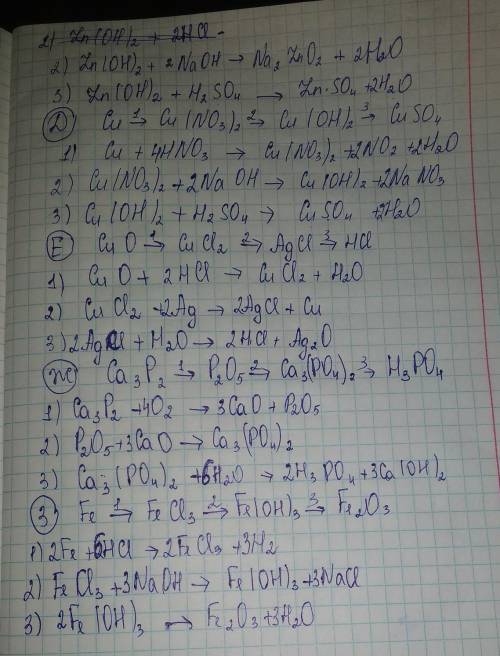 2) Zn(OH)₂ + 2HCl -
2) Zn(OH)₂ + 2NaOH → Na₂ZnO₂ + 2H₂O
3) Zn(OH)₂ + H₂SO₄ → Zn·SO₄ + 2H₂O
Д Cu 1→ Cu(NO₃)₂ 2→ Cu(OH)₂ 3→ CuSO₄
1) Cu + 4HNO₃ → Cu(NO₃)₂ + 2NO₂ + 2H₂O
2) Cu(NO₃)₂ + 2NaOH → Cu(OH)₂ + 2NaNO₃
3) Cu(OH)₂ + H₂SO₄ → CuSO₄ + 2H₂O
Е CuO 1→ CuCl₂ 2→ AgCl 3→ HCl
1) CuO + 2HCl → CuCl₂ + H₂O
2) CuCl₂ + 2Ag → 2AgCl + Cu
3) 2AgCl + H₂O → 2HCl + Ag₂O
Ж Ca₃P₂ 1→ P₂O₅ 2→ Ca₃(PO₄)₂ 3→ H₃PO₄
1) Ca₃P₂ + 4O₂ → 3CaO + P₂O₅
2) P₂O₅ + 3CaO → Ca₃(PO₄)₂
3) Ca₃(PO₄)₂ + 6H₂O → 2H₃PO₄ + 3Ca(OH)₂
З Fe 1→ FeCl₃ 2→ Fe(OH)₃ 3→ Fe₂O₃
1) 2Fe + 6HCl → 2FeCl₃ + 3H₂
2) FeCl₃ + 3NaOH → Fe(OH)₃ + 3NaCl
3) 2Fe(OH)₃ → Fe₂O₃ + 3H₂O